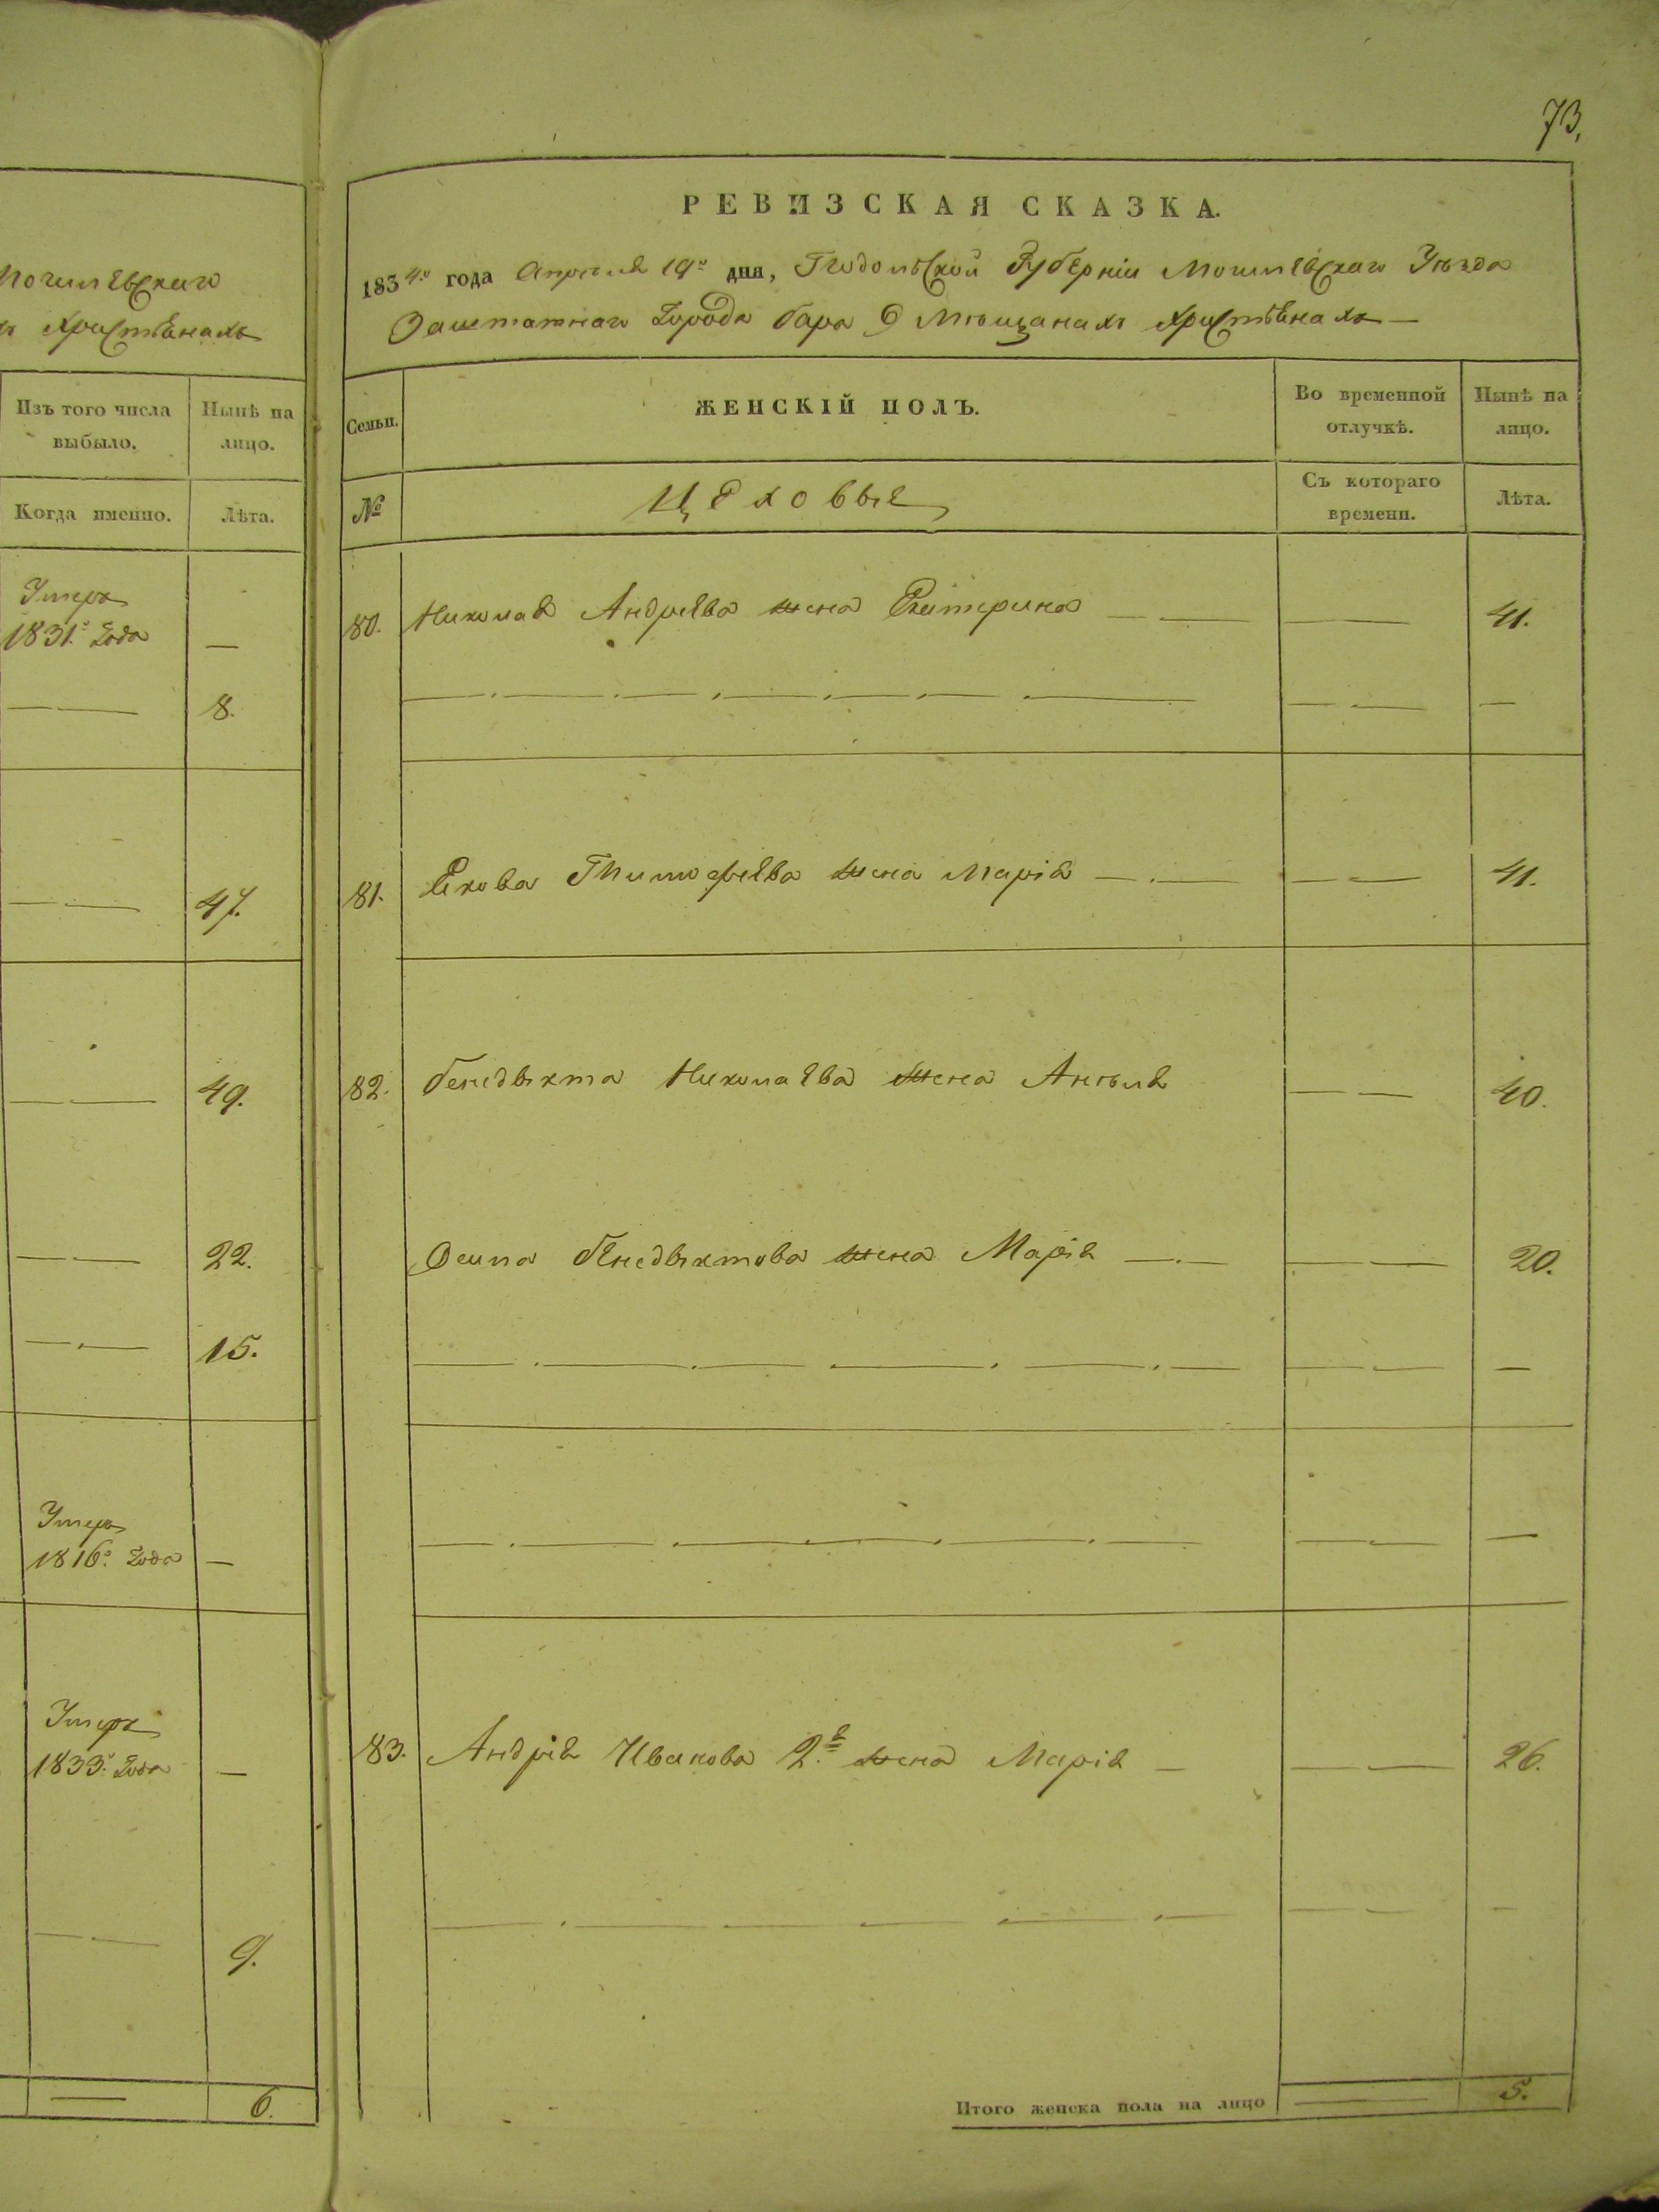 73,
Могилевскаго
Христіянахъ
Изъ того числа выбыло.
Нынѣ на лицо.
Когда именно.
Лѣта.
Умеръ
1831го Года —
8.
47.
49.
22.
15.
Умеръ
1816го Года —
Умеръ
1833го Года —
9.
6.
РЕВИЗСКАЯ СКАЗКА.
1834го года Апреля 19го дня, Подольской Губерніи Могилевскаго Уезда
Заштатнаго Города Бара О Мещанахъ Христіянахъ —
Семьи.
ЖЕНСКІЙ ПОЛЪ.
Во временной отлучкѣ.
Нынѣ на лицо.
№
Цеховые
Съ котораго времени.
Лѣта.
80. Николая Андреева жена Екатерина — 41.
81. Якова Тимофеева жена Марія — 41.
82. Бенедыкта Николаева жена Анеля 40.
Осипа Бенедыктова жена Марія — 20.
83. Андрія Иванова 2я жена Марія — 26.
Итого женска пола на лицо 5.